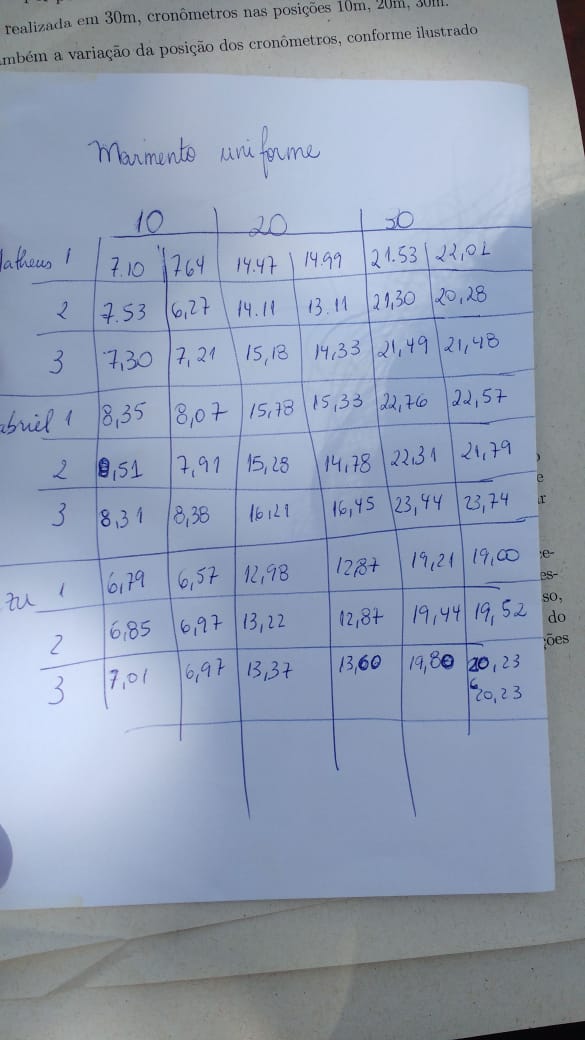 realizada em 30m, cronômetros nas posições 10m, 20m, 30m.
mbém a variação da posição dos cronômetros, conforme ilustrado
Marimento uniforme
10 20 30
atheus 1 7.10 764 14.47 14.99 21.53 22,02
2 7.53 6,27 14.11 13.11 21,30 20,28
3 7,30 7,21 15,18 14,33 21,49 21,48
abriel 1 8,35 8,07 15,78 15,33 22,76 22,57
2 8,51 7,91 15,28 14,78 22,31 21,79
3 8,31 8,38 16,21 16,45 23,44 23,74
1 6,79 6,57 12,98 12,87 19,21 19,00
2 6,85 6,97 13,22 12,87 19,44 19,52
3 7,01 6,97 13,37 13,60 19,80 20,23
20,23
e
r
e-
es-
so,
do
ções